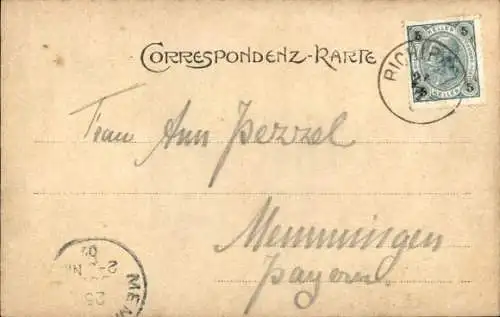 CORRESPONDENZ-KARTE
5 HELLER 5
Frau Ann Pezzel
Memmingen
Bayern
MEM
25
2-